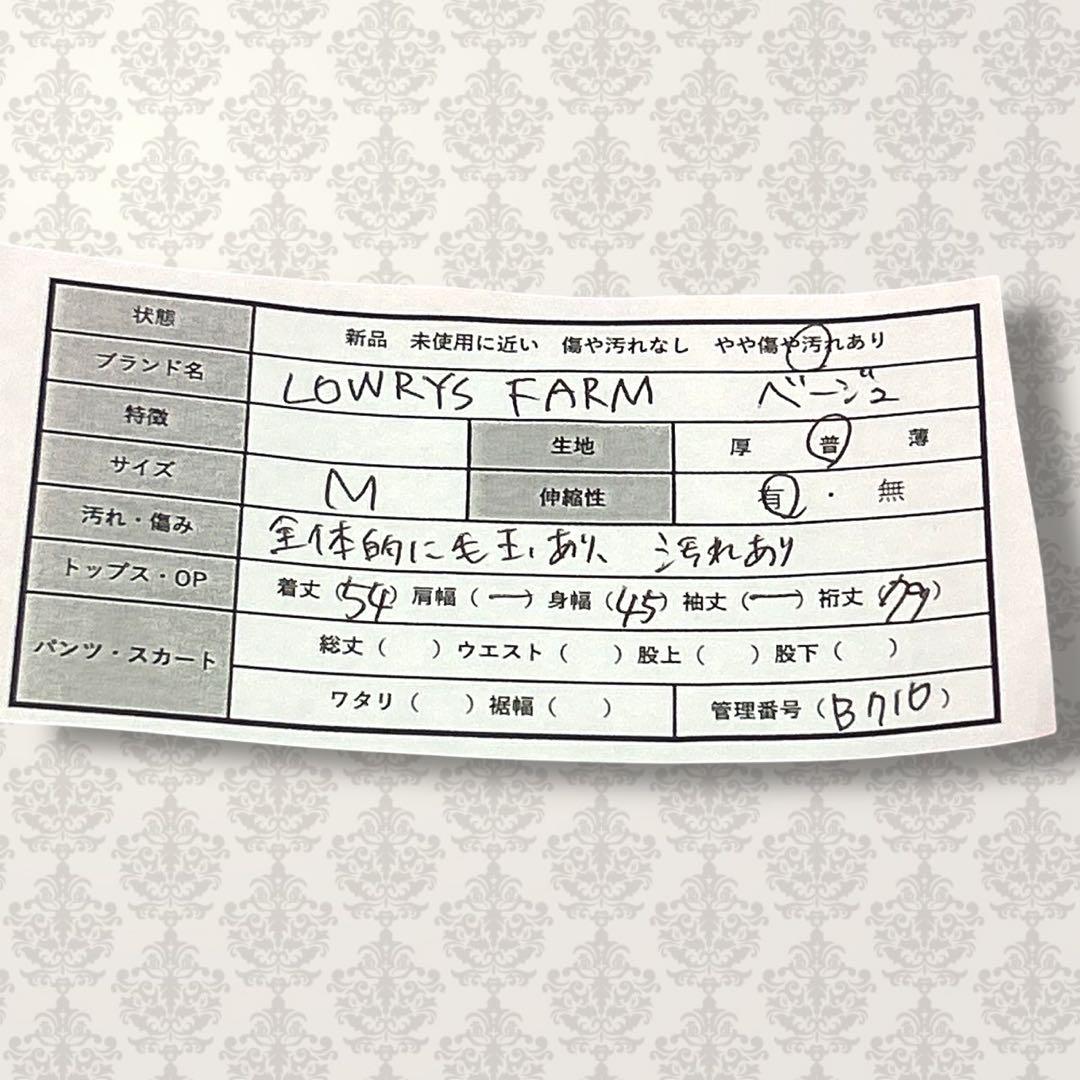 状態 新品 未使用に近い 傷や汚れなし やや傷や汚れあり
ブランド名 LOWRYS FARM ベージュ
特徴 生地 厚 普 薄
サイズ M 伸縮性 有 ・ 無
汚れ・傷み 全体的に毛玉あり、汚れあり
トップス・OP 着丈(54) 肩幅(ー) 身幅(45) 袖丈(ー) 裄丈(79)
パンツ・スカート 総丈( ) ウエスト( ) 股上( ) 股下( )
ワタリ( ) 裾幅( ) 管理番号(B710)